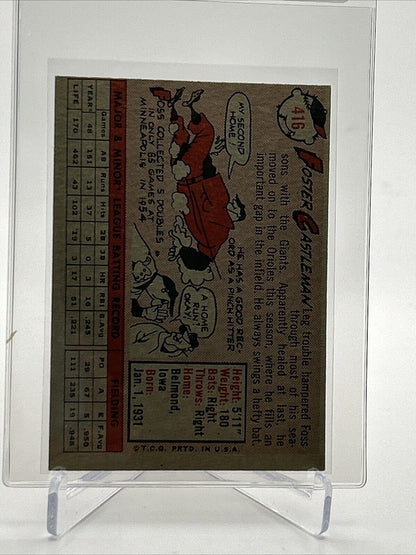 416
FOSTER CASTLEMAN
Leg trouble hampered Foss
through most of his sea-
sons with the Giants. Apparently healed at last he
moved on to the Orioles this season, where he fills an
important gap in the infield. He always swings a hefty bat.
MY SECOND
HOME!
HE HAS A GOOD REC-
ORD AS A PINCH HITTER
A HOME
RUN
OKAY!
FOSS COLLECTED 5 DOUBLES
IN ONLY 85 GAMES AT
MINNEAPOLIS IN 1954.
Height: 5'11"
Weight: 180
Bats: Right
Throws: Right
Home:
Belmond,
Iowa
Born:
Jan. 1, 1931
©T.C.G. PRTD. IN U.S.A.
MAJOR & MINOR LEAGUE BATTING RECORD FIELDING
Games AB Runs Hits 2B 3B HR RBI B.Avg PO A E F.Avg
YEAR 48 151 13 37 5 0 3 16 .245 29 67 5 .950
LIFE 170 462 43 102 19 3 17 51 .221 111 235 19